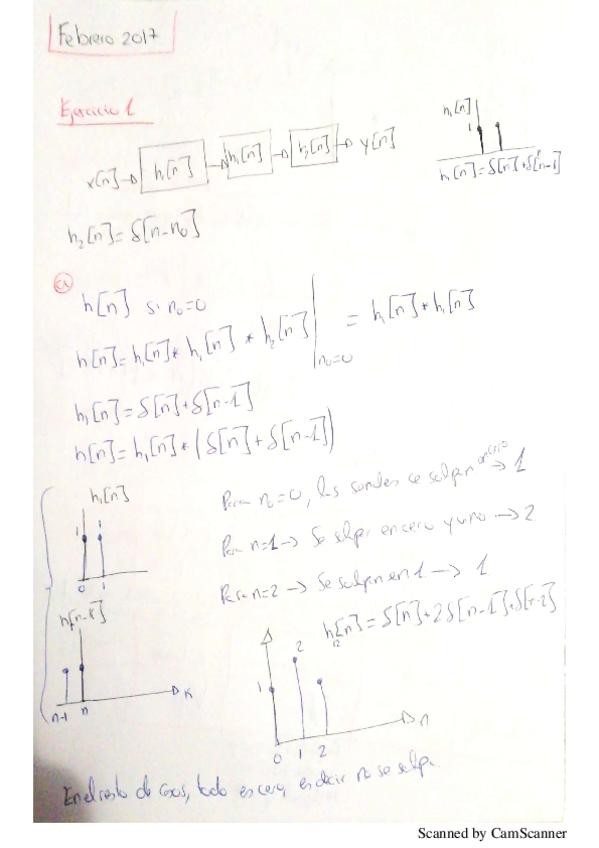 Febrero 2017
Ejercicio 1
x[n] → h₁[n] → h₁[n] → h₂[n] → y[n]
h₁[n]
1
h₁[n]=δ[n]+δ[n-1]
h₂[n]=δ[n-n₀]
a
h[n] si n₀=0
h[n]=h₁[n]* h₁[n] * h₂[n]| n₀=0 = h₁[n]*h₁[n]
h₁[n]=δ[n]+δ[n-1]
h[n]=h₁[n]*(δ[n]+δ[n-1])
h₁[n]
1 1
0 1
h[n-k]
n-1 n
K
Para n₀=0, las sondes se solpan en cero → 1
Para n=1 → Se solpan en cero y uno → 2
Para n=2 → Se solpan en 1 → 1
h₁₂[n]=δ[n]+2δ[n-1]+δ[n-2]
1 2
0 1 2
n
En el resto de casos, todo es cero, es decir no se solpa.
Scanned by CamScanner